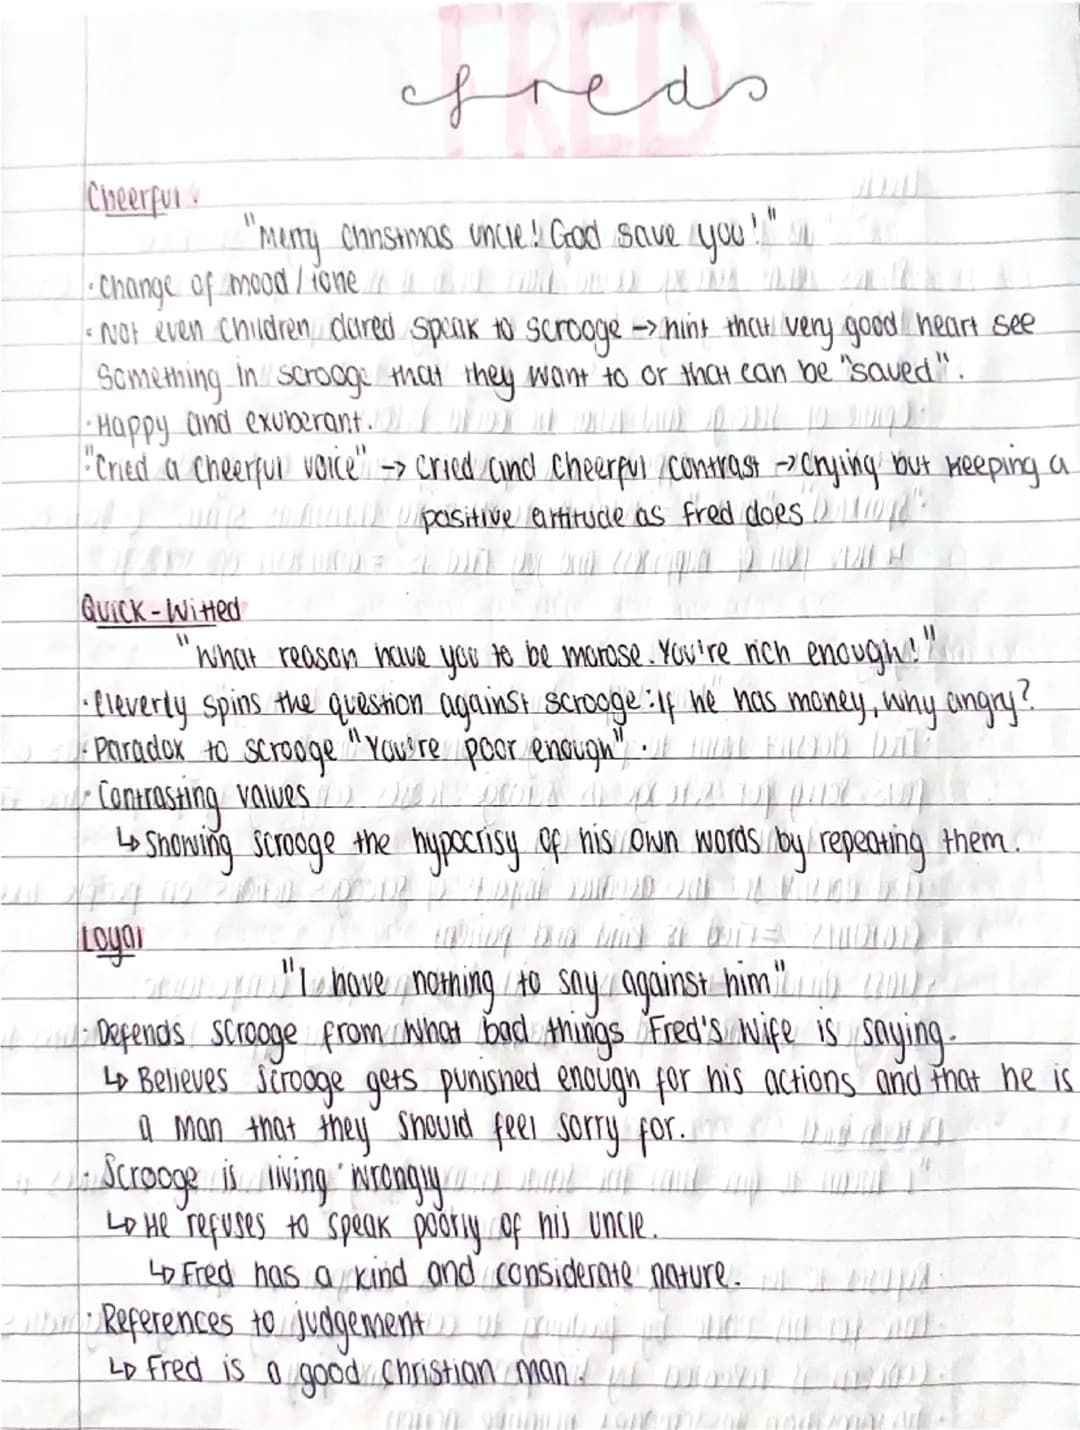 FRED
fred
Cheerful.
"Merry Christmas uncle! God save you!"
· Change of mood/tone
· Not even children dared speak to scrooge → hint that very good heart see
Something in scrooge that they want to or that can be "saved".
· Happy and exuberant.
· "Cried a cheerful voice" → cried and cheerful contrast → Crying but keeping a
positive attitude as fred does
Quick-Witted
"What reason have you to be morose. You're rich enough!"
· Cleverly spins the question against scrooge: if he has money, why angry?
· Paradox to scrooge "You're poor enough".
· Contrasting values
↳ Showing scrooge the hypocrisy of his own words by repeating them.
Loyal
"I have nothing to say against him"
· Defends scrooge from what bad things Fred's wife is saying.
↳ Believes Scrooge gets punished enough for his actions and that he is
a man that they should feel sorry for.
· Scrooge is living wrongly
↳ He refuses to speak poorly of his uncle.
↳ Fred has a kind and considerate nature.
· References to judgement
↳ Fred is a good Christian man.